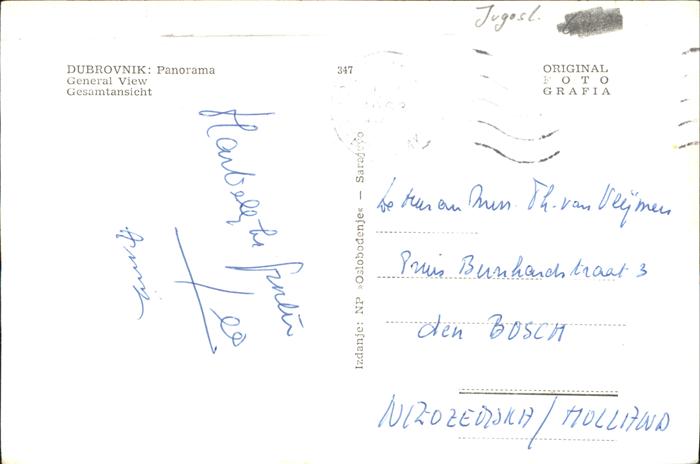 Jugosl.
DUBROVNIK: Panorama
General View
Gesamtansicht
347
ORIGINAL
FOTO
GRAFIA
Izdanje: NP »Oslobođenje« — Sarajevo
Hartelijke groeten
De Heer en Mevr. Th. van Vlijmen
Prins Bernhardstraat 3
den BOSCH
NIZOZEMSKA / HOLLAND